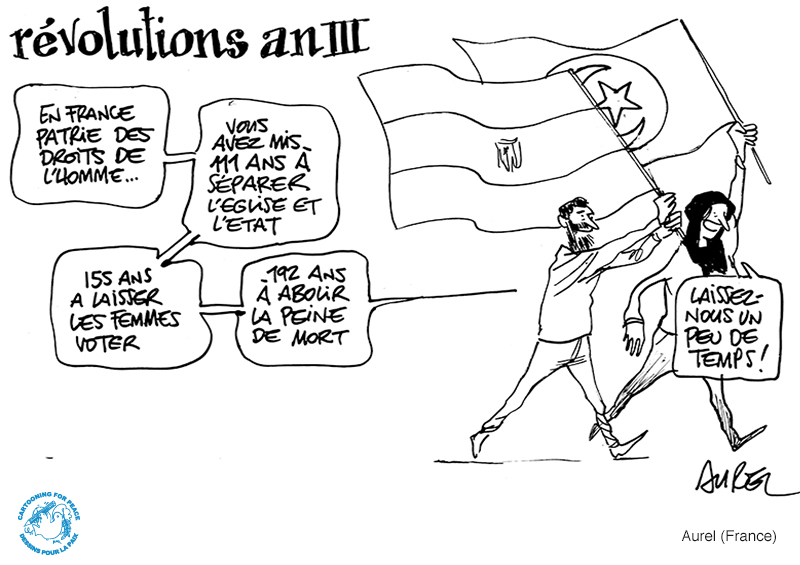 révolutions an III
EN FRANCE
PATRIE DES
DROITS DE
L'HOMME...
VOUS
AVEZ MIS
111 ANS À
SÉPARER
L'EGLISE ET
L'ETAT
155 ANS
A LAISSER
LES FEMMES
VOTER
192 ANS
À ABOLIR
LA PEINE
DE MORT
LAISSEZ-
NOUS UN
PEU DE
TEMPS!
AUREL
CARTOONING FOR PEACE
DESSINS POUR LA PAIX
Aurel (France)